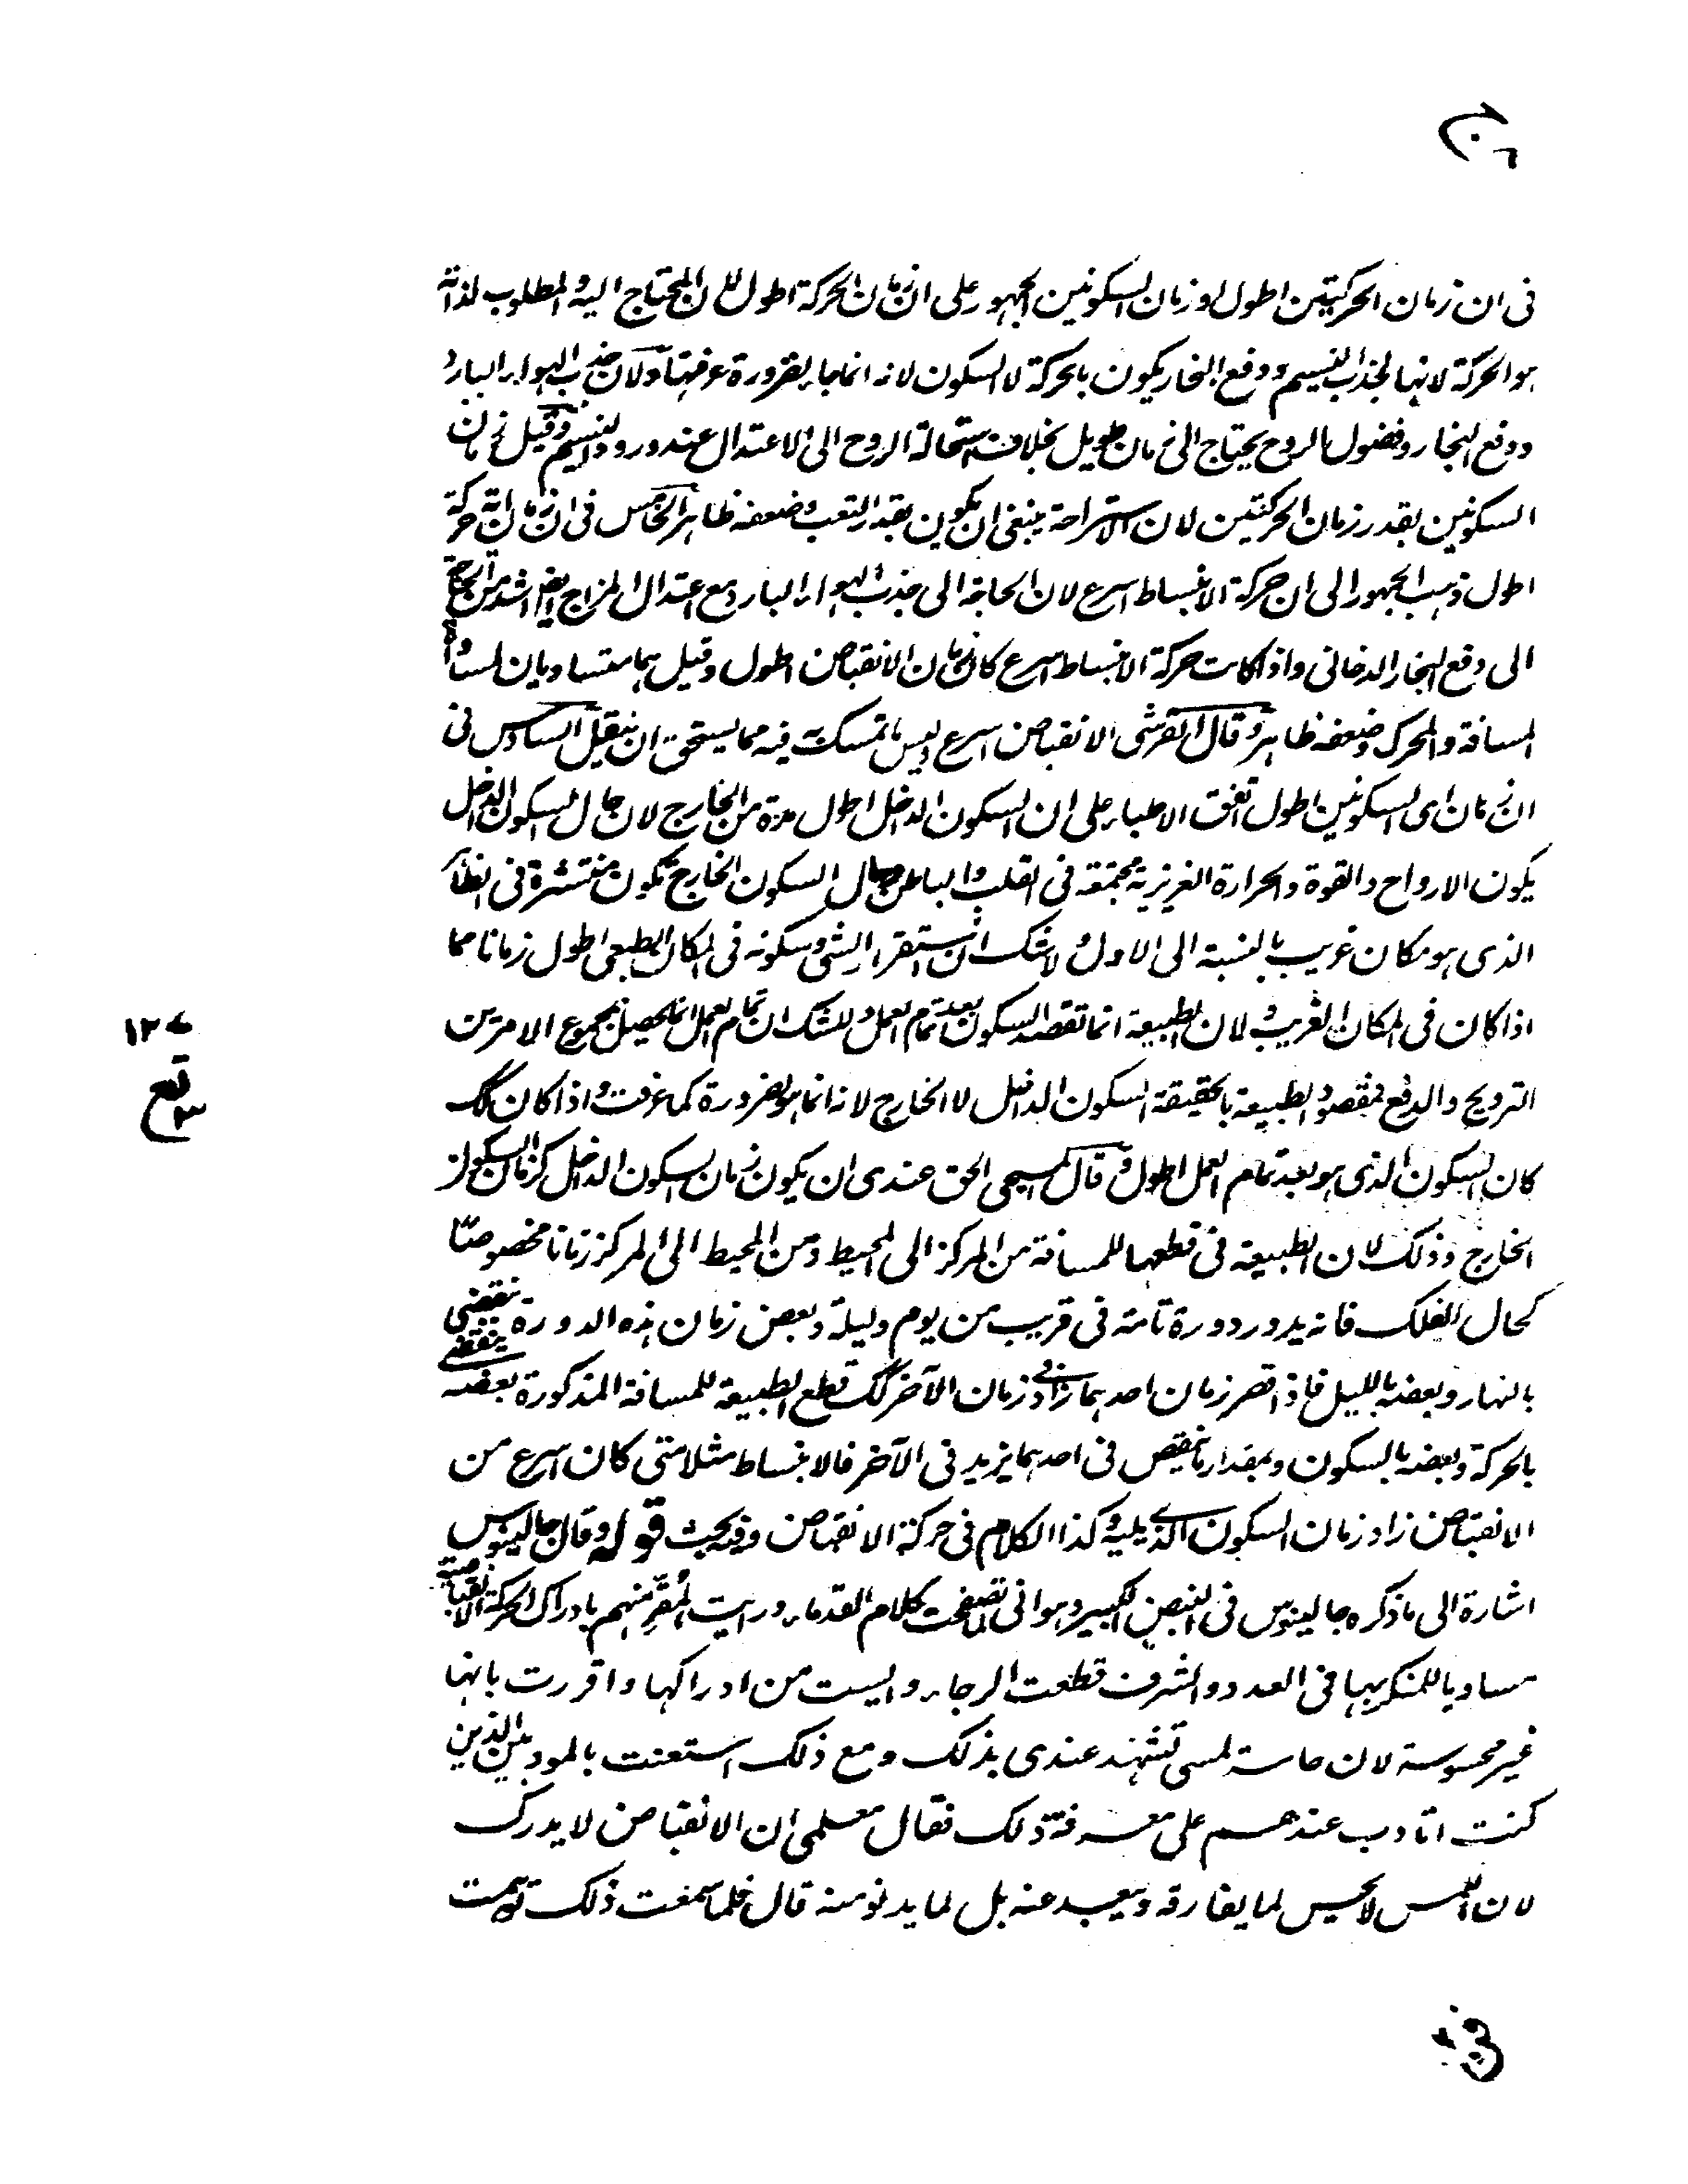 فى ان زمان الحركتين اطول او زمان السكونين الجمهور على ان زمان الحركة اطول لان المحتاج اليه والمطلوب لذاته
هو الحركة لانها لجذب النسيم ودفع البخار يكون بالحركة لا السكون لانه انما جا بضرورة عرفتها ولان جذب الهواء البارد
ودفع البخار وفضول الروح يحتاج الى زمان طويل بخلاف استحالة الروح الى الاعتدال عند ورود النسيم وقيل زمان
السكونين بقدر زمان الحركتين لان الاستراحة ينبغى ان يكون بقدر التعب وضعفه ظاهر الخامس فى ان زمان اية حركة
اطول ذهب الجمهور الى ان حركة الانبساط اسرع لان الحاجة الى جذب الهواء البارد مع اعتدال المزاج ايضا اشد من الحاجة
الى دفع البخار الدخانى واذا كانت حركة الانبساط اسرع كان زمان الانقباض اطول وقيل هما متساويان لتساوى
المسافة والمحرك وضعفه ظاهر وقال القرشى الانقباض اسرع وليس ما تمسك به فيه مما يستحق ان ينقل السادس فى
ان زمان اى السكونين اطول اتفق الاطباء على ان السكون الداخل اطول مدة من الخارج لان حال السكون الداخل
يكون الارواح والقوة والحرارة الغريزية مجتمعة فى القلب والباطن وحال السكون الخارج تكون منتشرة فى الظاهر
الذى هو مكان غريب بالنسبة الى الاول ولا شك ان استقرار الشئ وسكونه فى المكان الطبيعى اطول زمانا مما
اذا كان فى المكان الغريب ولان الطبيعة انما تقصد السكون بعد تمام العمل ولا شك ان تمام العمل انما يحصل بمجموع الامرين
الترويح والدفع فمقصود الطبيعة بالحقيقة السكون الداخل لا الخارج لانه انما هو لضرورة كما عرفت واذا كان كك
كان السكون الذى هو بعد تمام العمل اطول وقال المسيحى الحق عندى ان يكون زمان السكون الداخل كزمان السكون
الخارج وذلك لان الطبيعة فى قطعها للمسافة من المركز الى المحيط ومن المحيط الى المركز زمانا مخصوصا
كحال الفلك فانه يدور دورة تامة فى قريب من يوم وليلة وبعض زمان هذه الدورة ينقضى
بالنهار وبعضه بالليل فاذا قصر زمان احدهما زاد فى زمان الآخر كك قطع الطبيعة للمسافة المذكورة بعضه
بالحركة وبعضه بالسكون وبمقدار ما نقص فى احدهما يزيد فى الآخر فالانبساط مثلا متى كان اسرع من
الانقباض زاد زمان السكون الذى يليه وكذا الكلام فى حركة الانقباض وفيه بحث قوله وقال جالينوس
اشارة الى ما ذكره جالينوس فى النبض الكبير وهو انى لما تصفحت كلام القدماء ورايت المقر منهم بادراك الحركة الانقباضية
مساويا للمنكر بها فى العدد والشرف قطعت الرجاء وايست من ادراكها واقررت بانها
غير محسوسة لان حاسة لمسى تشهد عندى بذلك ومع ذلك استعنت بالمودبين الذين
كنت اتادب عندهم على معرفة ذلك فقال معلمى ان الانقباض لا يدرك
لان اللمس لا يحس لما يفارقه ويبعد عنه بل لما يدنو منه قال فلما سمعت ذلك توهمت
١٢٧